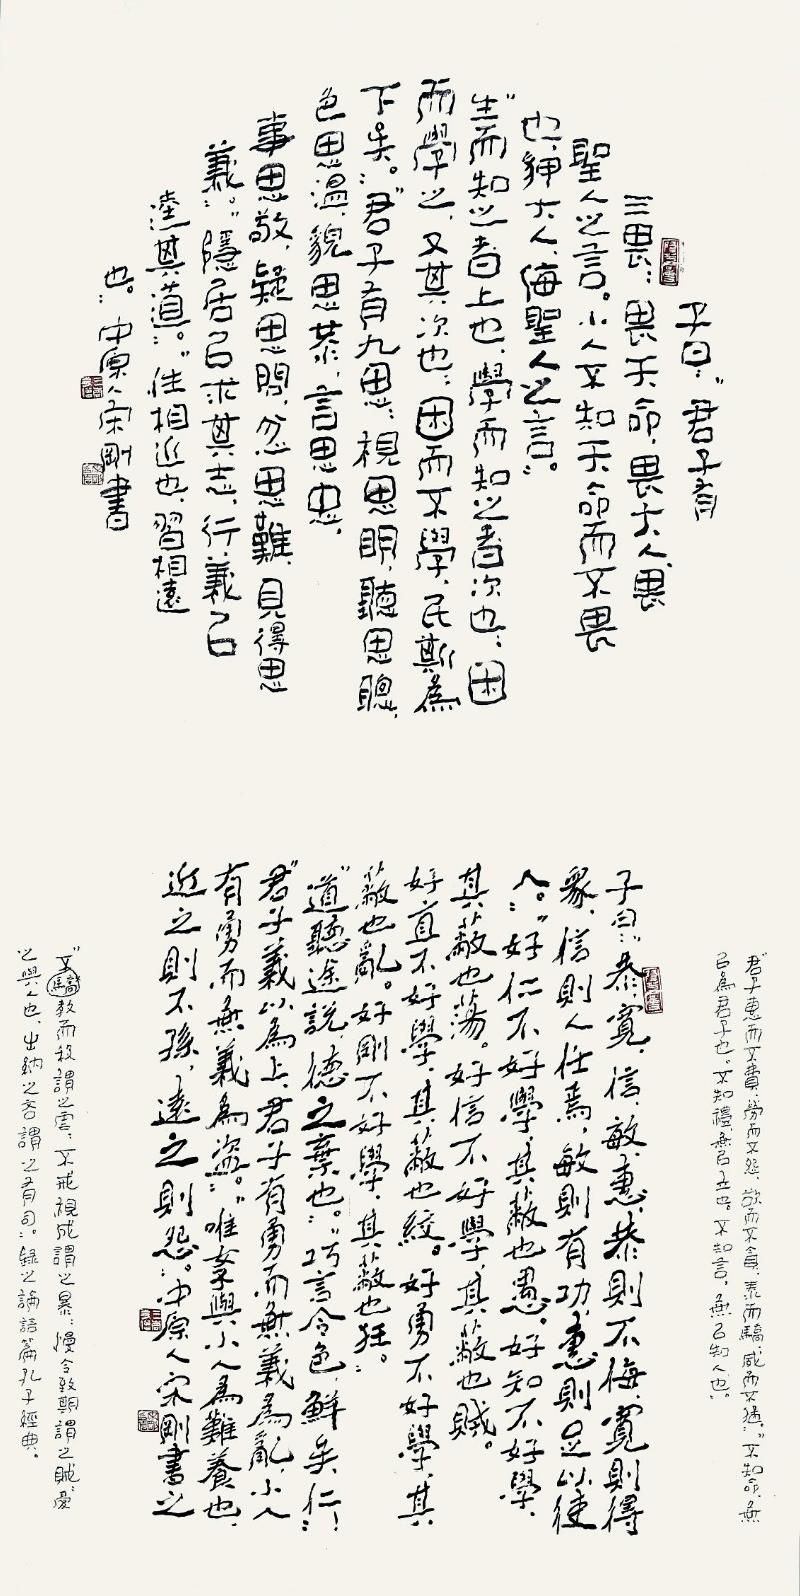 子曰："君子有
三畏：畏天命，畏大人，畏
聖人之言。小人不知天命而不畏
也，狎大人，侮聖人之言。"
"生而知之者上也，學而知之者次也；困
而學之，又其次也；困而不學，民斯為
下矣。"："君子有九思：視思明，聽思聰，
色思溫，貌思恭，言思忠，
事思敬，疑思問，忿思難，見得思
義。"："隱居以求其志，行義以
達其道。"："性相近也，習相遠
也。"：中原人宋剛書
子曰："恭，寬，信，敏，惠，恭則不侮，寬則得
衆，信則人任焉，敏則有功，惠則足以使
人。"："好仁不好學，其蔽也愚，好知不好學，
其蔽也蕩。好信不好學，其蔽也賊。
好直不好學，其蔽也絞。好勇不好學，其
蔽也亂。好剛不好學，其蔽也狂。"：
"道聽途說，德之棄也。"："巧言令色，鮮矣仁！"：
"君子義以為上，君子有勇而無義為亂，小人
有勇而無義為盜。"："唯女與小人為難養也，
近之則不孫，遠之則怨。"：中原人宋剛書之
"君子惠而不費，勞而不怨，欲而不貪，泰而驕，威而不猛。"："不知命，無
以為君子也。不知禮，無以立也。不知言，無以知人也。"
"不教而殺謂之虐；不戒視成謂之暴；慢令致期謂之賊；
之與人也，出納之吝謂之有司。"：錄之論語篇孔子經典。